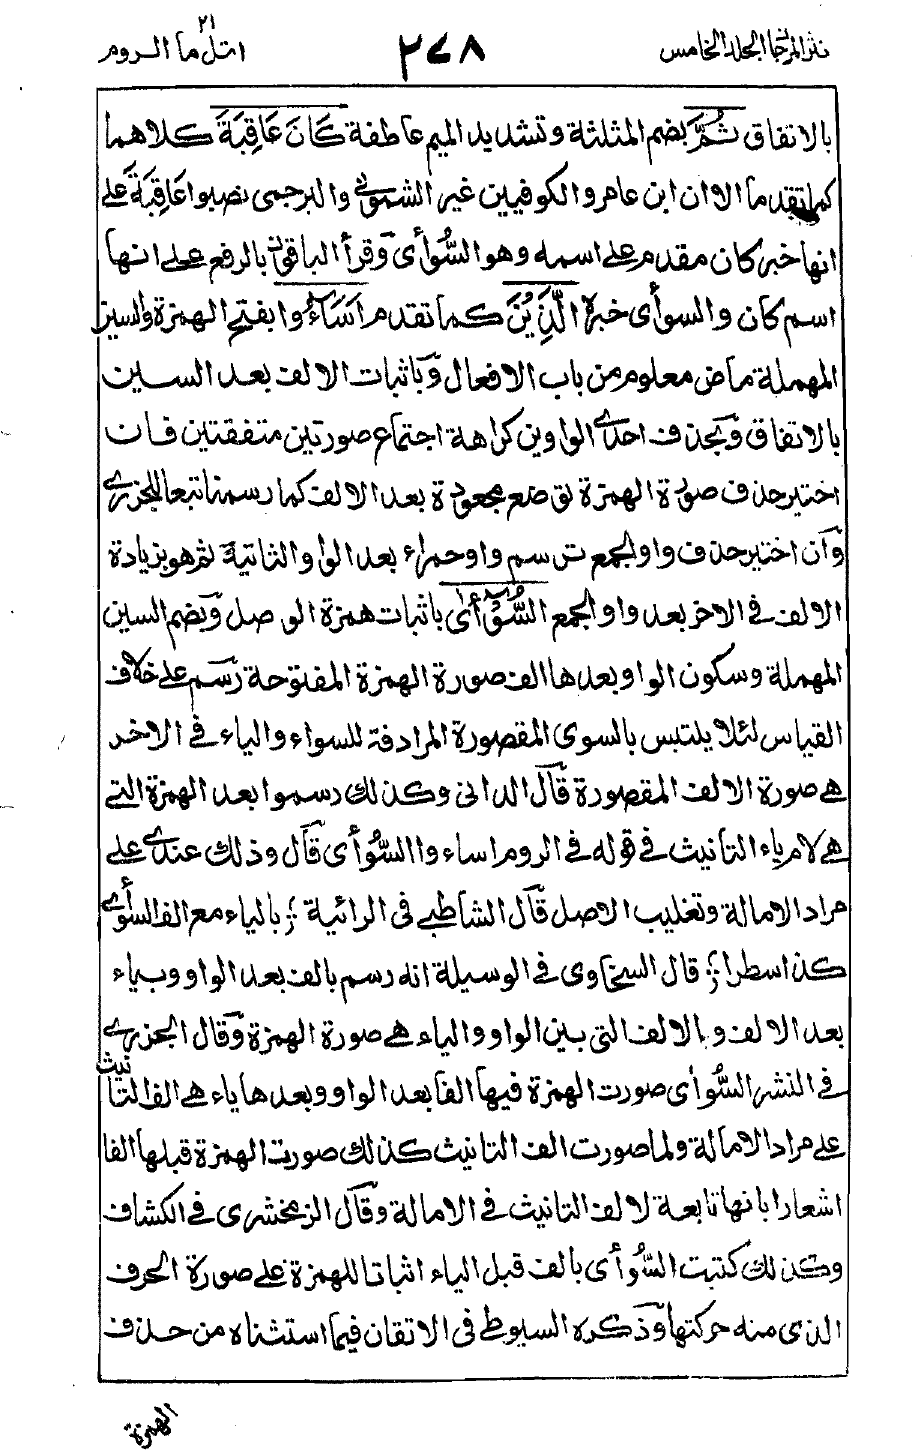 نثر المرجان المجلد الخامس
٢٤٨
٢١
اتل ما الروم
بالاتفاق ثُمَّ بضم المثلثة وتشديد الميم عاطفة كَانَ عَاقِبَةَ كلاهما
كما تقدما الا ان ابن عامر والكوفيين غير الشمونى والبرجمى نصبوا عَاقِبَةَ على
انها خبر كان مقدم على اسمه وهو السُّوأى وقرأ الباقون بالرفع على انها
اسم كان والسوأى خبره الَّذِيْنَ كما تقدم اَسَاءُوا بفتح الهمزة والسين
المهملة ماض معلوم من باب الافعال وباثبات الالف بعد السين
بالاتفاق وبحذف احدى الواوين كراهة اجتماع صورتين متفقتين فان
اختير حذف صورة الهمزة توضع مجعودة بعد الالف كما رسمنا تبعا للجزرى
وان اختير حذف واو الجمع ترسم واو حمراء بعد الواو الثانية ثم هو بزيادة
الالف فى الاخر بعد واو الجمع السُّوْأَى باثبات همزة الوصل وبضم السين
المهملة وسكون الواو بعدها الف صورة الهمزة المفتوحة رسم على خلاف
القياس لئلا يلتبس بالسوى المقصورة المرادفة للسواء والياء فى الاخر
هى صورة الالف المقصورة قال الدانى وكذلك رسموا بعد الهمزة التى
هى لام ياء التأنيث فى قوله فى الروم اساءوا السُّوأى قال وذلك عندى على
مراد الامالة وتغليب الاصل قال الشاطبى فى الرائية ؛ بالياء مع الف السوأى
كذا سطرا ؛ قال السخاوى فى الوسيلة انه رسم بالف بعد الواو وبياء
بعد الالف والالف التى بين الواو والياء هى صورة الهمزة وقال الجزرى
فى النشر السُّوأى صورت الهمزة فيها الفا بعد الواو وبعدها ياء هى الف التانيث
على مراد الامالة ولما صورت الف التانيث كذلك صورت الهمزة قبلها الفا
اشعارا بانها تابعة لالف التانيث فى الامالة وقال الزمخشرى فى الكشاف
وكذلك كتبت السُّوأى بالف قبل الياء اثباتا للهمزة على صورة الحرف
الذى منه حركتها وذكره السيوطى فى الاتقان فيما استثناه من حذف
الهمزة